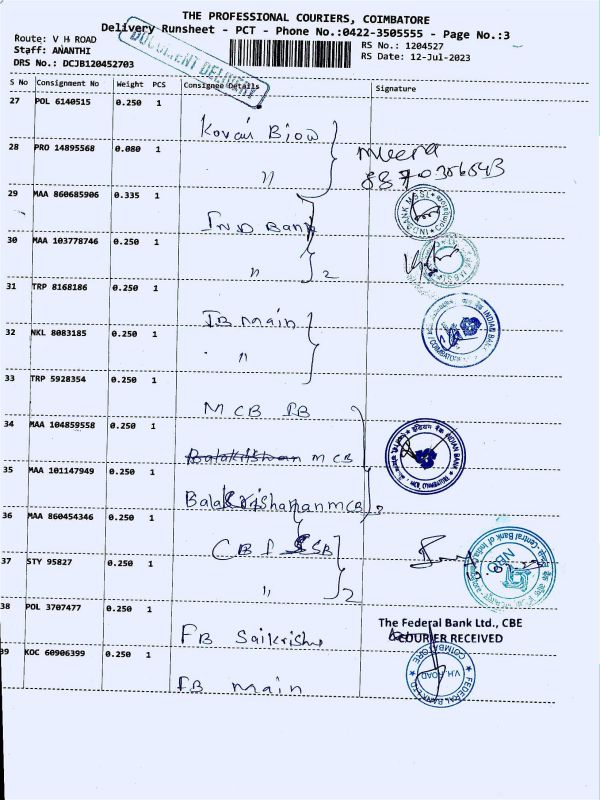 THE PROFESSIONAL COURIERS, COIMBATORE
Delivery Runsheet - PCT - Phone No.:0422-3505555 - Page No.:3
Route: V H ROAD
RS No.: 1204527
Staff: ANANTHI
RS Date: 12-Jul-2023
DRS No.: DCJB120452703
DOCUMENT DELIVERY
S No Consignment No Weight PCS Consignee Details Signature
27 POL 6140515 0.250 1
Kovai
28 PRO 14895568 0.080 1
"
Meera
29 MAA 860685906 0.335 1
IND Bank
30 MAA 103778746 0.250 1
" 2
31 TRP 8168186 0.250 1
IB main
INDIAN BANK
COIMBATORE
32 NKL 8083185 0.250 1
"
33 TRP 5928354 0.250 1
MCB IB
34 MAA 104859558 0.250 1
इंडियन बैंक INDIAN BANK
Balakrishnan MCB
35 MAA 101147949 0.250 1
Balakrishanan MCB
36 MAA 860454346 0.250 1
Central Bank of India
CB
37 STY 95827 0.250 1
" 2
38 POL 3707477 0.250 1
The Federal Bank Ltd., CBE
COURIER RECEIVED
FB
39 KOC 60906399 0.250 1
FEDERAL BANK LTD
V.H. ROAD
COIMBATORE
FB main